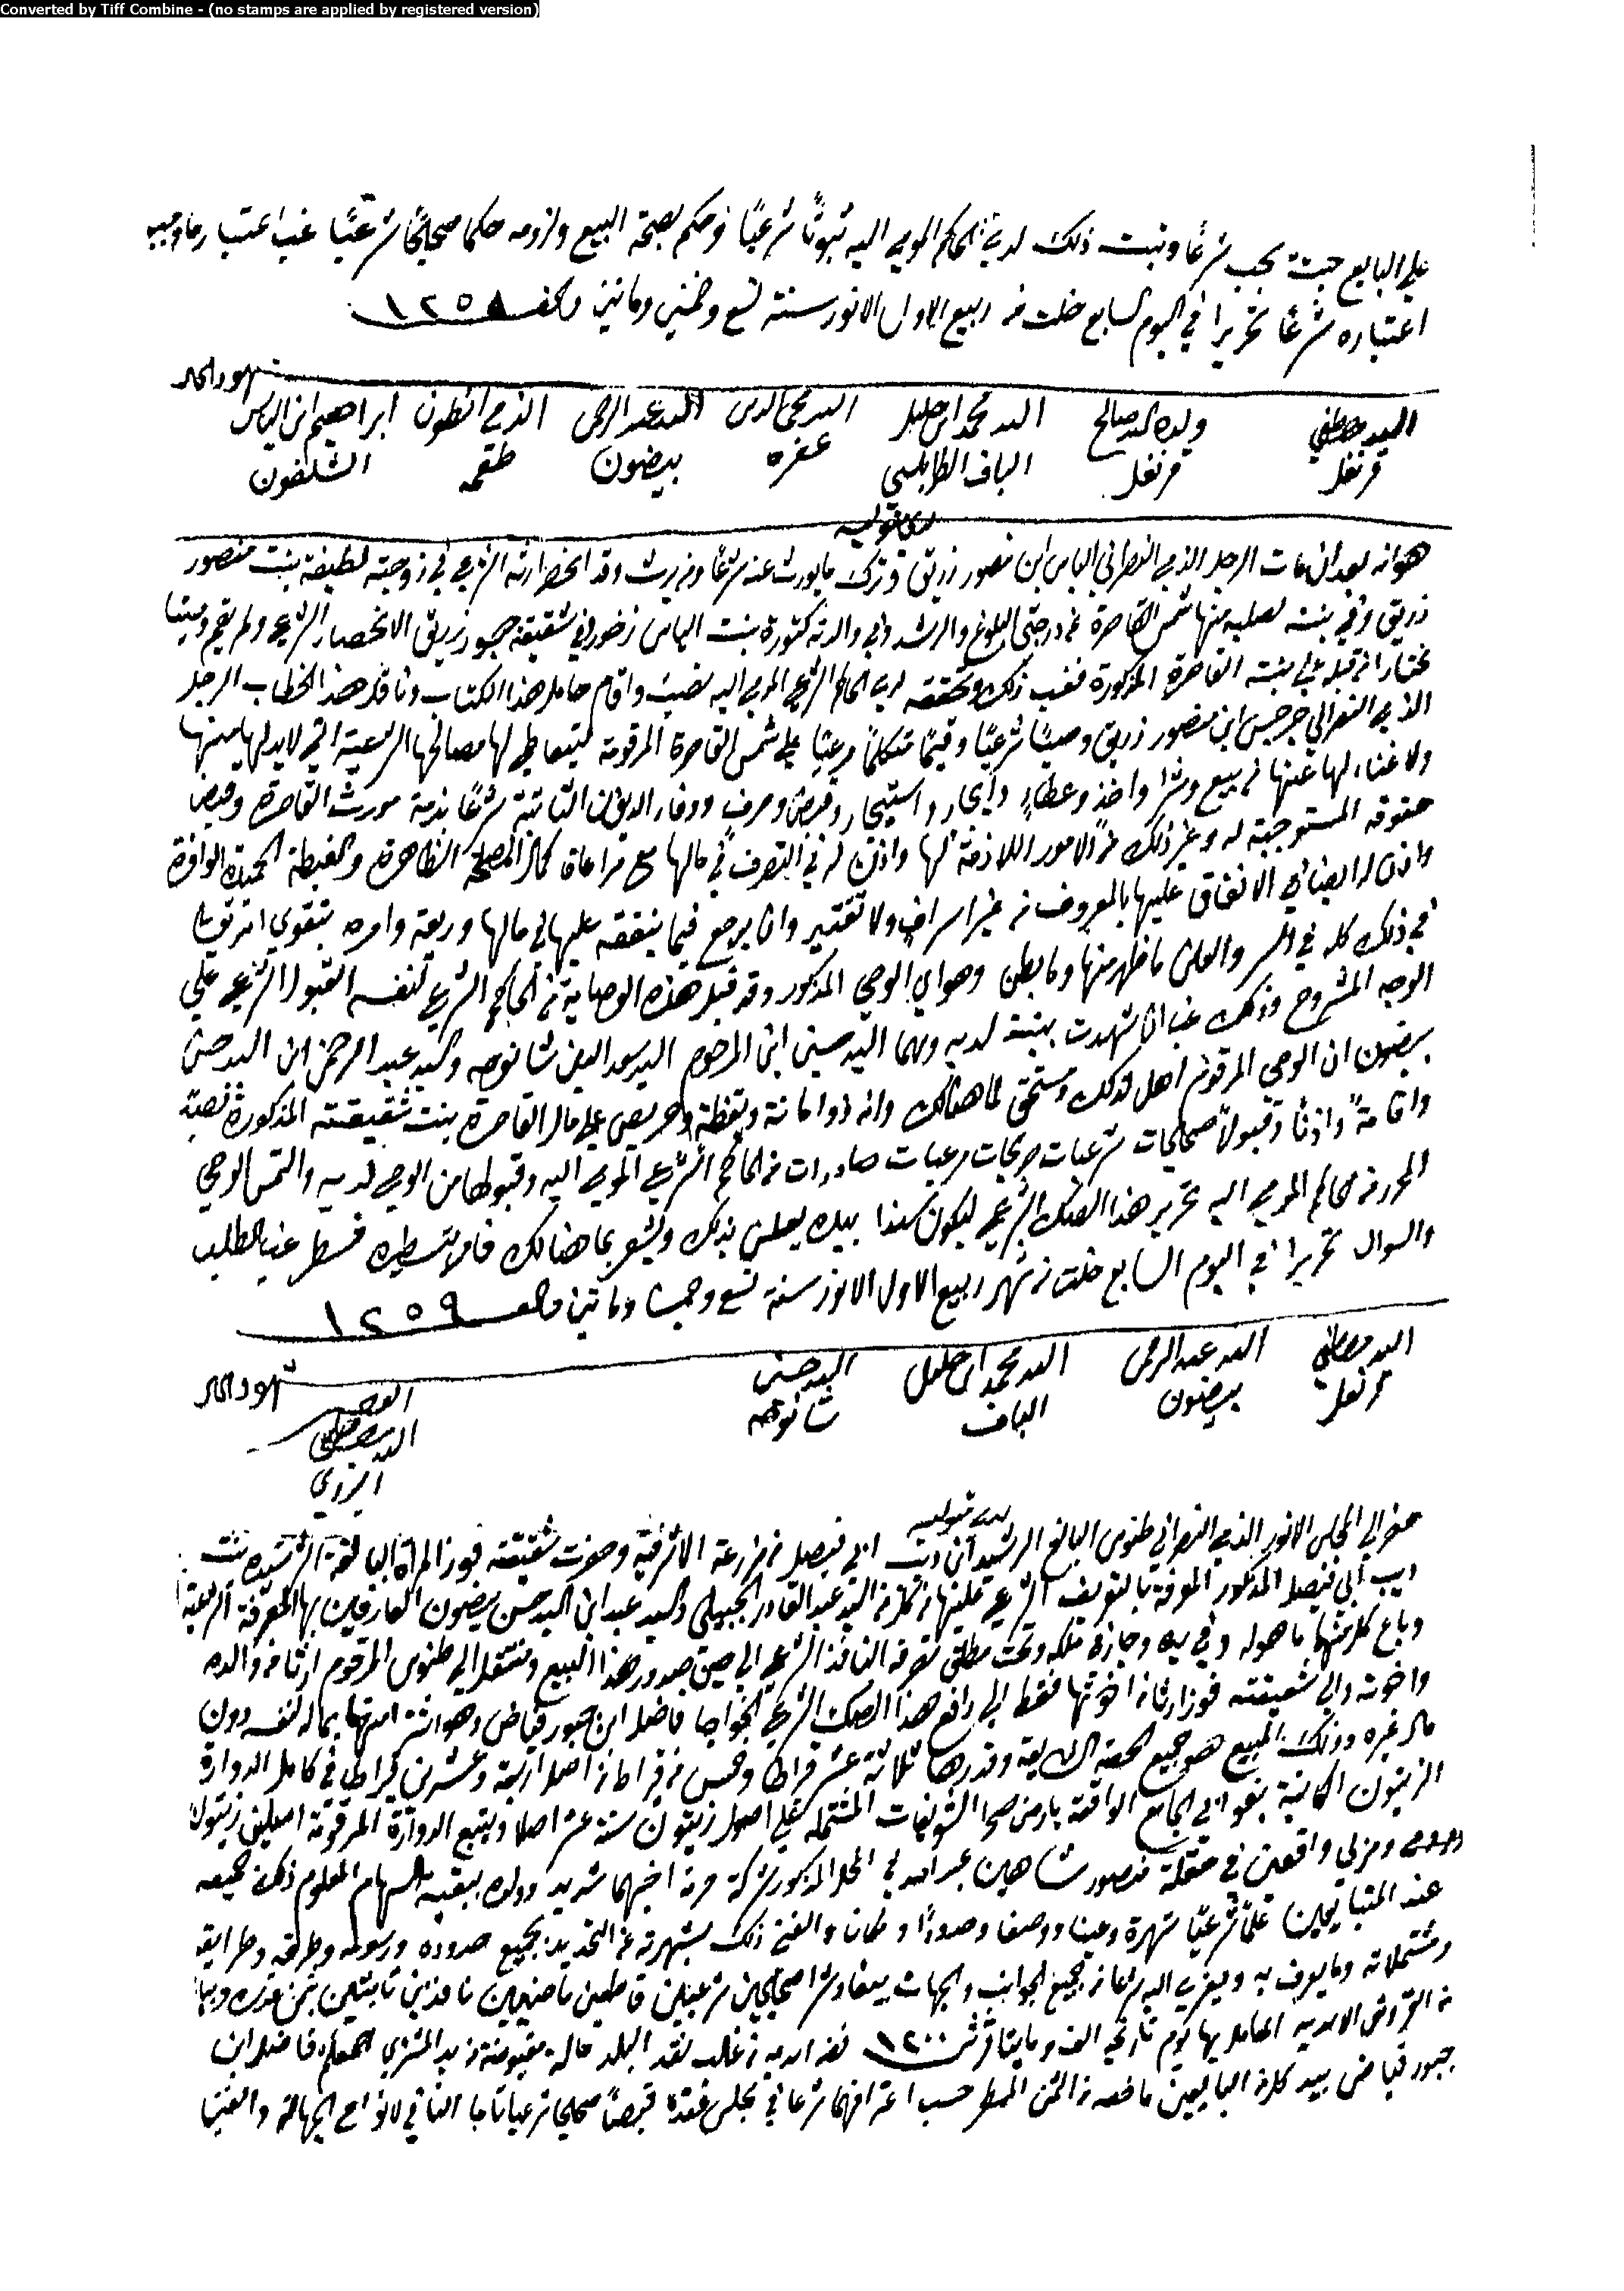 Converted by Tiff Combine - (no stamps are applied by registered version)
على البايع حيث يجب شرعا وثبت ذلك لدى الحاكم المومى اليه ثبوتًا شرعيًا وحكم بصحة البيع ولزومه حكما صحيحًا شرعيًا غب اعتبار ما وجب
اعتباره شرعًا تحريرا في اليوم السابع خلت من ربيع الاول الانور سنة تسع وخمسين ومايتين والف ١٢٥٨
شهود الحال
السيد مصطفى قرنفل
ولده السيد صالح قرنفل
السيد محمد ابن خليل الباف الطرابلسي
السيد محي الدين عفره
السيد عبد الرحمن بيضون
الذمي انطون طقمه
ابراهيم ابن الياس الشلفون
هو انه بعد ان مات الرجل الذمي النصراني الياس ابن منصور زريق وترك ما يورث عنه شرعًا ومن يرث وقد انحصر ارثه الشرعي في زوجته لطيفة بنت منصور
زريق وفي بنته لصلبه منها شمس القاصرة عن درجتي البلوغ والرشد وفي والدته كتورة بنت الياس زخور وفي شقيقه جبور زريق الانحصار الشرعي ولم يقم وصيا
مختارا من قبله على بنته القاصرة المذكورة فغب ذلك وتحققه لدى الحاكم الشرعي المومى اليه نصب واقام حامل هذا الكتاب وناقل هذا الخطاب الرجل
الذمي النصراني جرجس ابن منصور زريق وصيًا شرعيًا وقيمًا متكلمًا مرعيًا على شمس القاصرة المرقومة ليتعاطى لها مصالحها الشرعية التي لا بد لها منها
ولا غناء لها عنها من بيع وشرا واخذ وعطاء وايجار واستيجار وقبض وصرف ووفاء الديون الثابتة شرعًا بذمة مورث القاصرة وقبض
حقوقه المستوجبة له وغير ذلك من الامور اللازمة لها واذن له في التصرف في مالها مع مراعاة كمال المصلحة الظاهرة والغبطة الوافرة
واذن له ايضا في الانفاق عليها بالمعروف من غير اسراف ولا تقتير وان يرجع فيما ينفقه عليها في مالها وريعه وامره بتقوى الله
في ذلك كله في السر والعلن ما ظهر منها وما بطن وهو اي الوصي المذكور وقد قبل هذه الوصاية من الحاكم الشرعي لنفسه القبول الشرعي على
الوجه المشروح وذلك غب ان شهدت بينة لديه وهما السيد حسين ابن المرحوم السيد سعد الدين شانوحه والسيد عبد الرحمن ابن السيد حسن
بيضون ان الوصي المرقوم اهل لذلك ومستحق لما هنالك وانه ذو امانة ويقظة وحريص على مال القاصرة بنت شقيقته المذكورة نصبة
واقامةً واذنًا وقبولاً صحيحات شرعيات صريحات مرعيات صادرات من الحاكم الشرعي المومى اليه وقبولها من الوصي لديه والتمس الوصي
المحرر من الحاكم المومى اليه تحرير هذا الصك الشرعي ليكون سندا بيده يعلن بذلك ويشعر بما هنالك فامر بتسطيره فسطر غب الطلب
والسوال تحريرا في اليوم السابع خلت من شهر ربيع الاول الانور سنة تسع وخمسين ومايتين والف ١٢٥٩
شهود الحال
السيد مصطفى قرنفل
السيد عبد الرحمن بيضون
السيد محمد ابن خليل الباف
السيد حسين شانوحه
السيد مصطفى
حضر الى المجلس الانور الذمي النصراني طنوس البالغ الرشيد ابن ديب ابي فيصل من مزرعة الاشرفية وحضرت شقيقته فوز المراة البالغة الرشيده بنت
ديب ابي فيصل المذكور المعرفة بالتعريف الشرعي عليها من كل من السيد عبد القادر الجبيلي والسيد عبد ابن السيد حسن بيضون العارفين بها المعرفة الشرعية
وباع كل منهما ما هو له وفي يده وحيازة ملكه وتحت مطلق تصرفه النافذ الشرعي الى حين صدور هذا البيع ومنتقل الى طنوس المرقوم ارثا من والده
واخوته والى شقيقته فوز ارثا من اخوتها فقط الى رافع هذا الصك الشرعي الخواجا فاضل ابن جبور فياض وهو اشترا منهما بماله لنفسه دون
مال غيره وذلك المبيع هو جميع الحصة الشايعة وقدرها ثلاثة عشر قراطا وخمس من قراط من اصل اربعة وعشرين قيراطا في كامل الدوارة
الزيتون الكاينة الواقعة بارض صحرا الشويفات المشتملة على اصول زيتون ستة عشر اصلا ويتبع الدوارة المرقومة اصلين زيتون
واقعين في حقلة منصور شاهين عبد الله في المحل المذكور شركة ببقية السهام المعلوم ذلك جميعه
عند المتبايعين علمًا شرعيًا شهرة وعينا ووصفا وحدودًا ومكانا والغني ذلك بشهرته عن التحديد بجميع حدوده ورسومه وطرقه وطرايقه
ومشتملاته وما يعرف به ويعزى اليه شرعا من جميع الجوانب والجهات بيعا وشرا صحيحين شرعيين قاطعين ماضيين نافذين ثابتين بثمن قدره وبيانه
من القروش الاسدية المعامل بها يوم تاريخه الف ومايتا قرش ١٢٠٠ فضه اسديه من غالب نقد البلد حالة مقبوضة من يد المشتري فاضل ابن
جبور فياض بيد كل من البايعين ما خصه من الثمن المسطر حسب اعترافهما شرعا في مجلس عقده قبضًا صحيحا شرعيا تاما النافي لانواع الجهالة والغبن